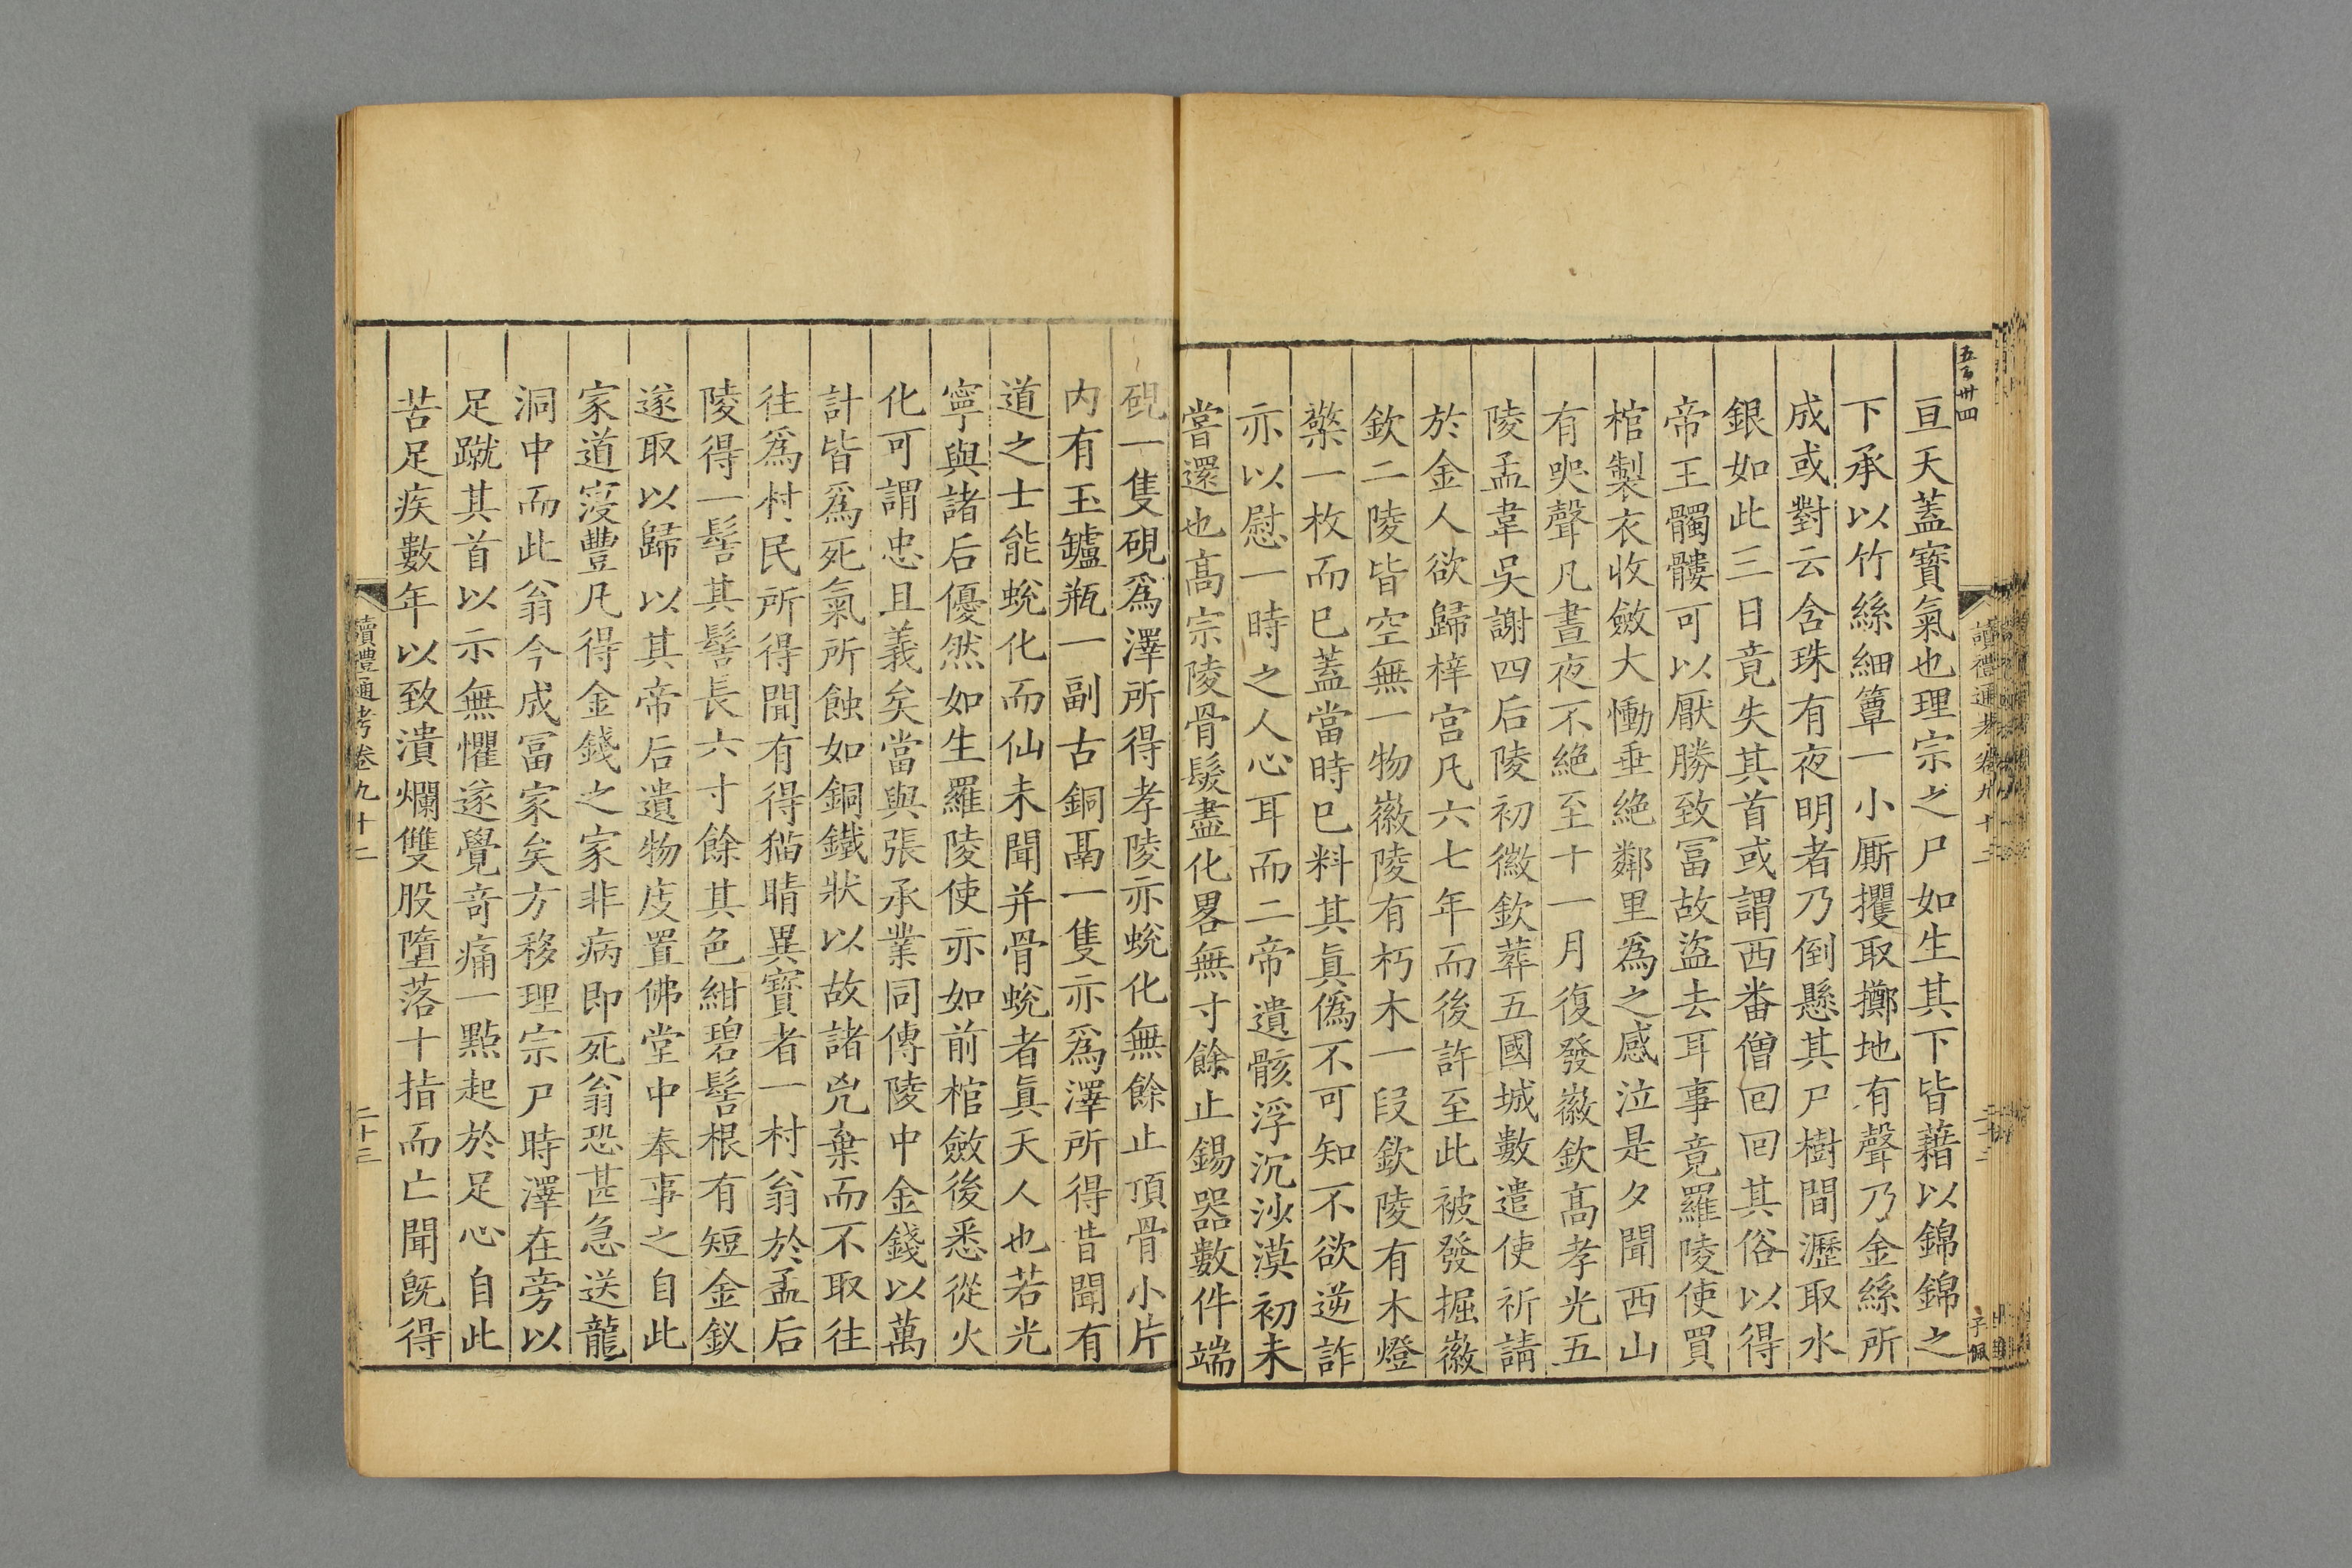 五百卅四
亘天蓋寳氣也理宗之尸如生其下皆藉以錦錦之
下承以竹絲細簟一小厮攫取擲地有聲乃金絲所
成或對云含珠有夜明者乃倒懸其尸樹間瀝取水
銀如此三日竟失其首或謂西番僧回回其俗以得
帝王髑髏可以厭勝致冨故盜去耳事竟羅陵使買
棺製衣收斂大慟垂絶鄰里爲之感泣是夕聞西山
有哭聲凡晝夜不絶至十一月復發徽欽髙孝光五
陵孟韋吳謝四后陵初徽欽葬五國城數遣使祈請
於金人欲歸梓宫凡六七年而後許至此被發掘徽
欽二陵皆空無一物徽陵有朽木一段欽陵有木燈
檠一枚而巳蓋當時巳料其眞僞不可知不欲逆詐
亦以慰一時之人心耳而二帝遺骸浮沉沙漠初未
嘗還也髙宗陵骨髮盡化畧無寸餘止錫器數件端
讀禮通考卷九十二
子佩
硯一隻硯爲澤所得孝陵亦蛻化無餘止頂骨小片
内有玉鑪瓶一副古銅鬲一隻亦爲澤所得昔聞有
道之士能蛻化而仙未聞并骨蛻者眞天人也若光
寧與諸后優然如生羅陵使亦如前棺斂後悉從火
化可謂忠且義矣當與張承業同傳陵中金錢以萬
計皆爲死氣所蝕如銅鐵狀以故諸兇棄而不取往
往爲村民所得聞有得猫睛異寳者一村翁於孟后
陵得一髻其髻長六寸餘其色紺碧髻根有短金釵
遂取以歸以其帝后遺物庋置佛堂中奉事之自此
家道寖豐凡得金錢之家非病即死翁恐甚急送龍
洞中而此翁今成冨家矣方移理宗尸時澤在旁以
足蹴其首以示無懼遂覺奇痛一點起於足心自此
苦足疾數年以致潰爛雙股墮落十指而亡聞旣得
讀禮通考卷九十二
二十三